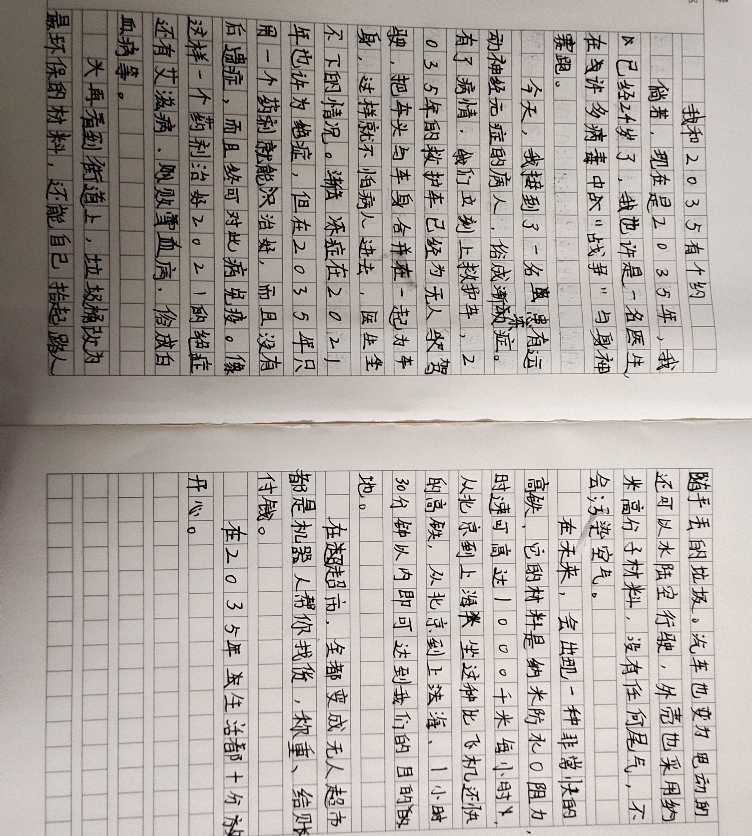 我和2035有个约
倘若,现在是2035年,我
已经24岁了,我也许是一名医生,
在与许多病毒中战"战争"与身神
赛跑。
今天,我接到了一名患有运
动神经元症的病人,俗成渐冻症。
有了病情,我们立刻上救护车,2
035年的救护车已经为无人驾
驶,把车头与车身合并在一起为车
身,这样就不怕病人进去,医生坐
不下的情况。渐冻症在2021
年也许为绝症,但在2035年只
用一个药剂就能治好,而且没有
后遗症,而且终可对此病免疫。像
这样一个药剂治好2021的绝症
还有艾滋病、败血病,俗成白
血病等。
再看到街道上,垃圾桶改为
最环保的材料,还能自己拾起路人
随手丢的垃圾。汽车也变为电动的
还可以水陆空行驶,外壳也采用纳
米高分子材料,没有任何尾气,不
会污染空气。
在未来,会出现一种非常快的
高铁,它的材料是纳米防水0阻力,
时速可高达1000千米每小时,
从北京到上海坐这种比飞机还快
的高铁,从北京到上海、1小时
30分钟以内即可达到我们的目的
地。
在超市,全都变成无人超市
都是机器人帮你找货,称重、结账
付钱。
在2035年生活都十分
开心。